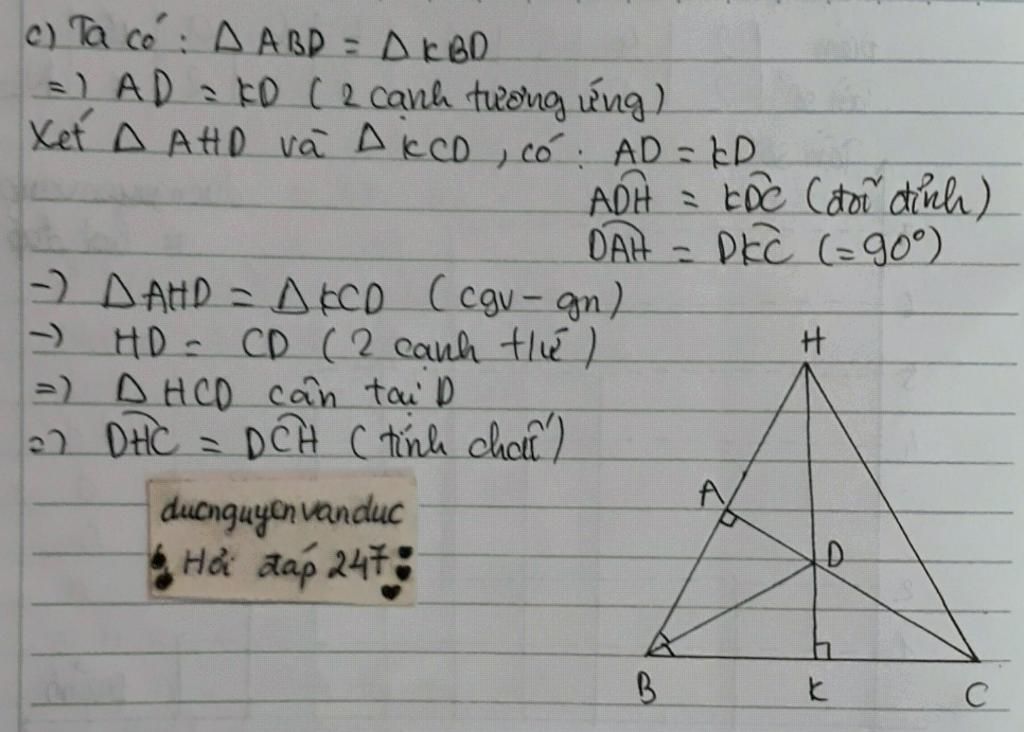 c) Ta có: Δ ABD = Δ KBD
=) AD = KD (2 cạnh tương ứng)
Xét Δ AHD và Δ KCD, có: AD = KD
ADH = KDC (đối đỉnh)
DAH = DKC (=90°)
-) Δ AHD = Δ KCD (cgv - gn)
-) HD = CD (2 cạnh tứ)
=) Δ HCD cân tại D
=) DHC = DCH (tính chất)
ducnguyenvanduc
Hỏi đáp 247
H
A
D
B K C